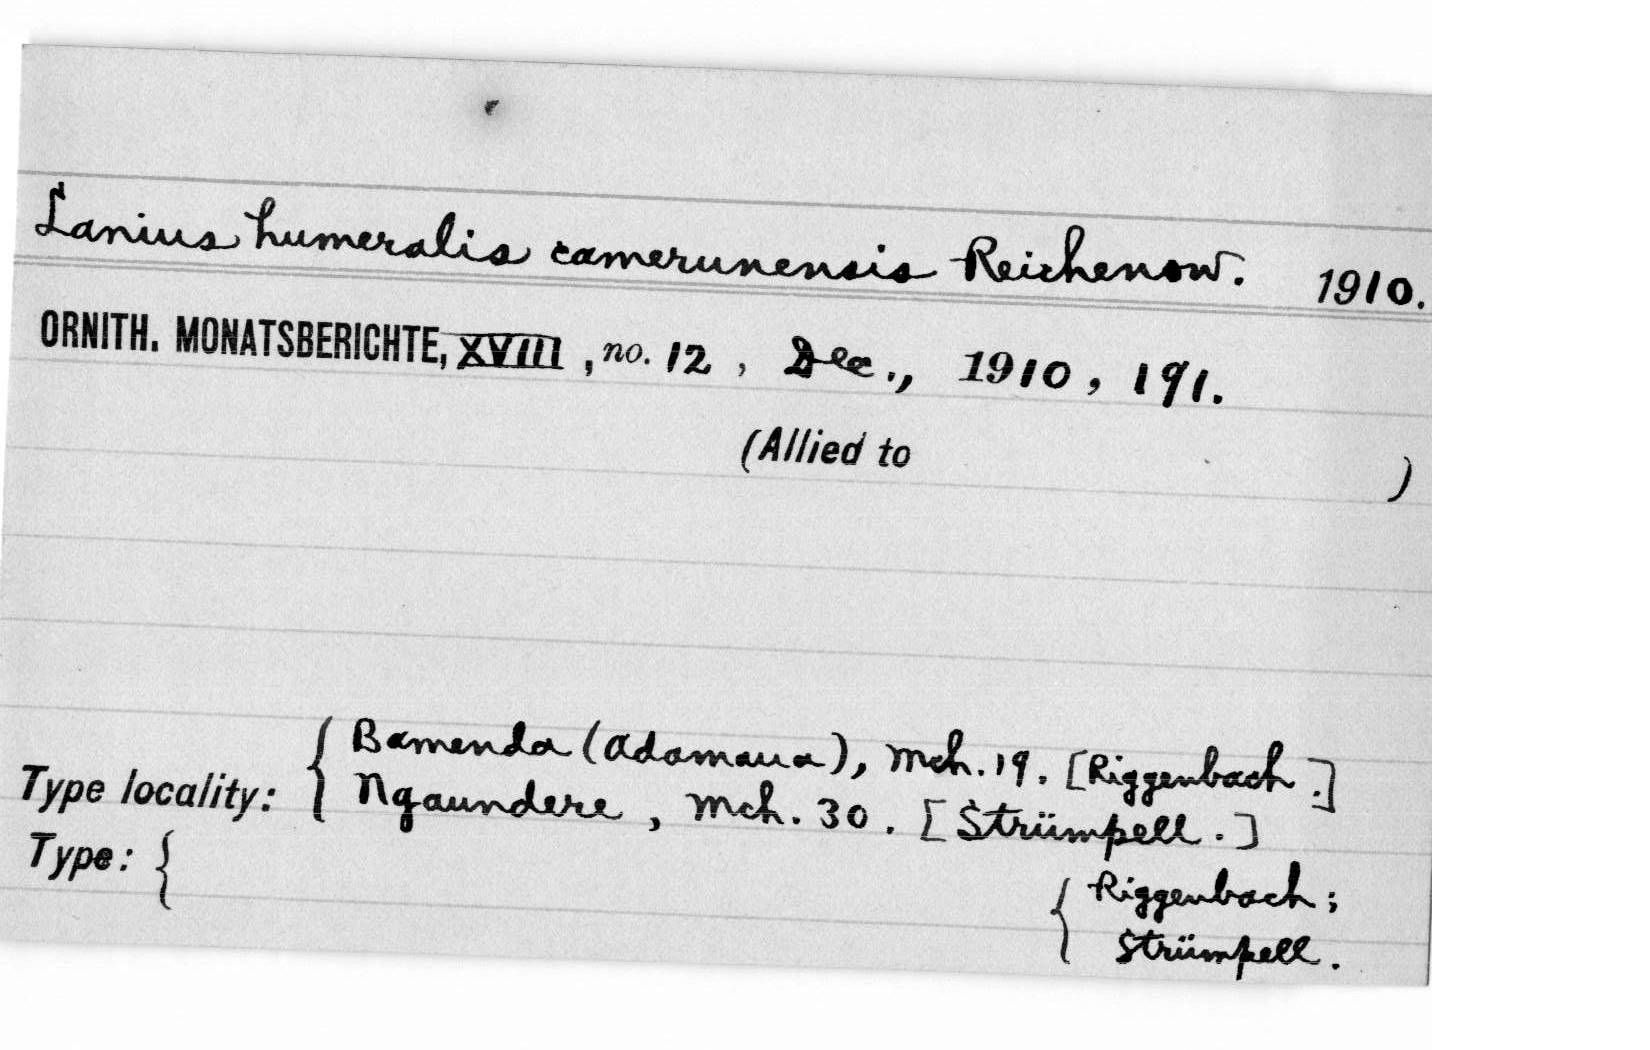 Lanius humeralis camerunensis Reichenow. 1910.
ORNITH. MONATSBERICHTE, XVIII, no. 12, Dec., 1910, 191.
(Allied to )
Bamenda (Adamaua), Mch. 19. [Riggenbach.]
Type locality: { Ngaundere, Mch. 30. [Strümpell.]
Type: { { Riggenbach;
Strümpell.